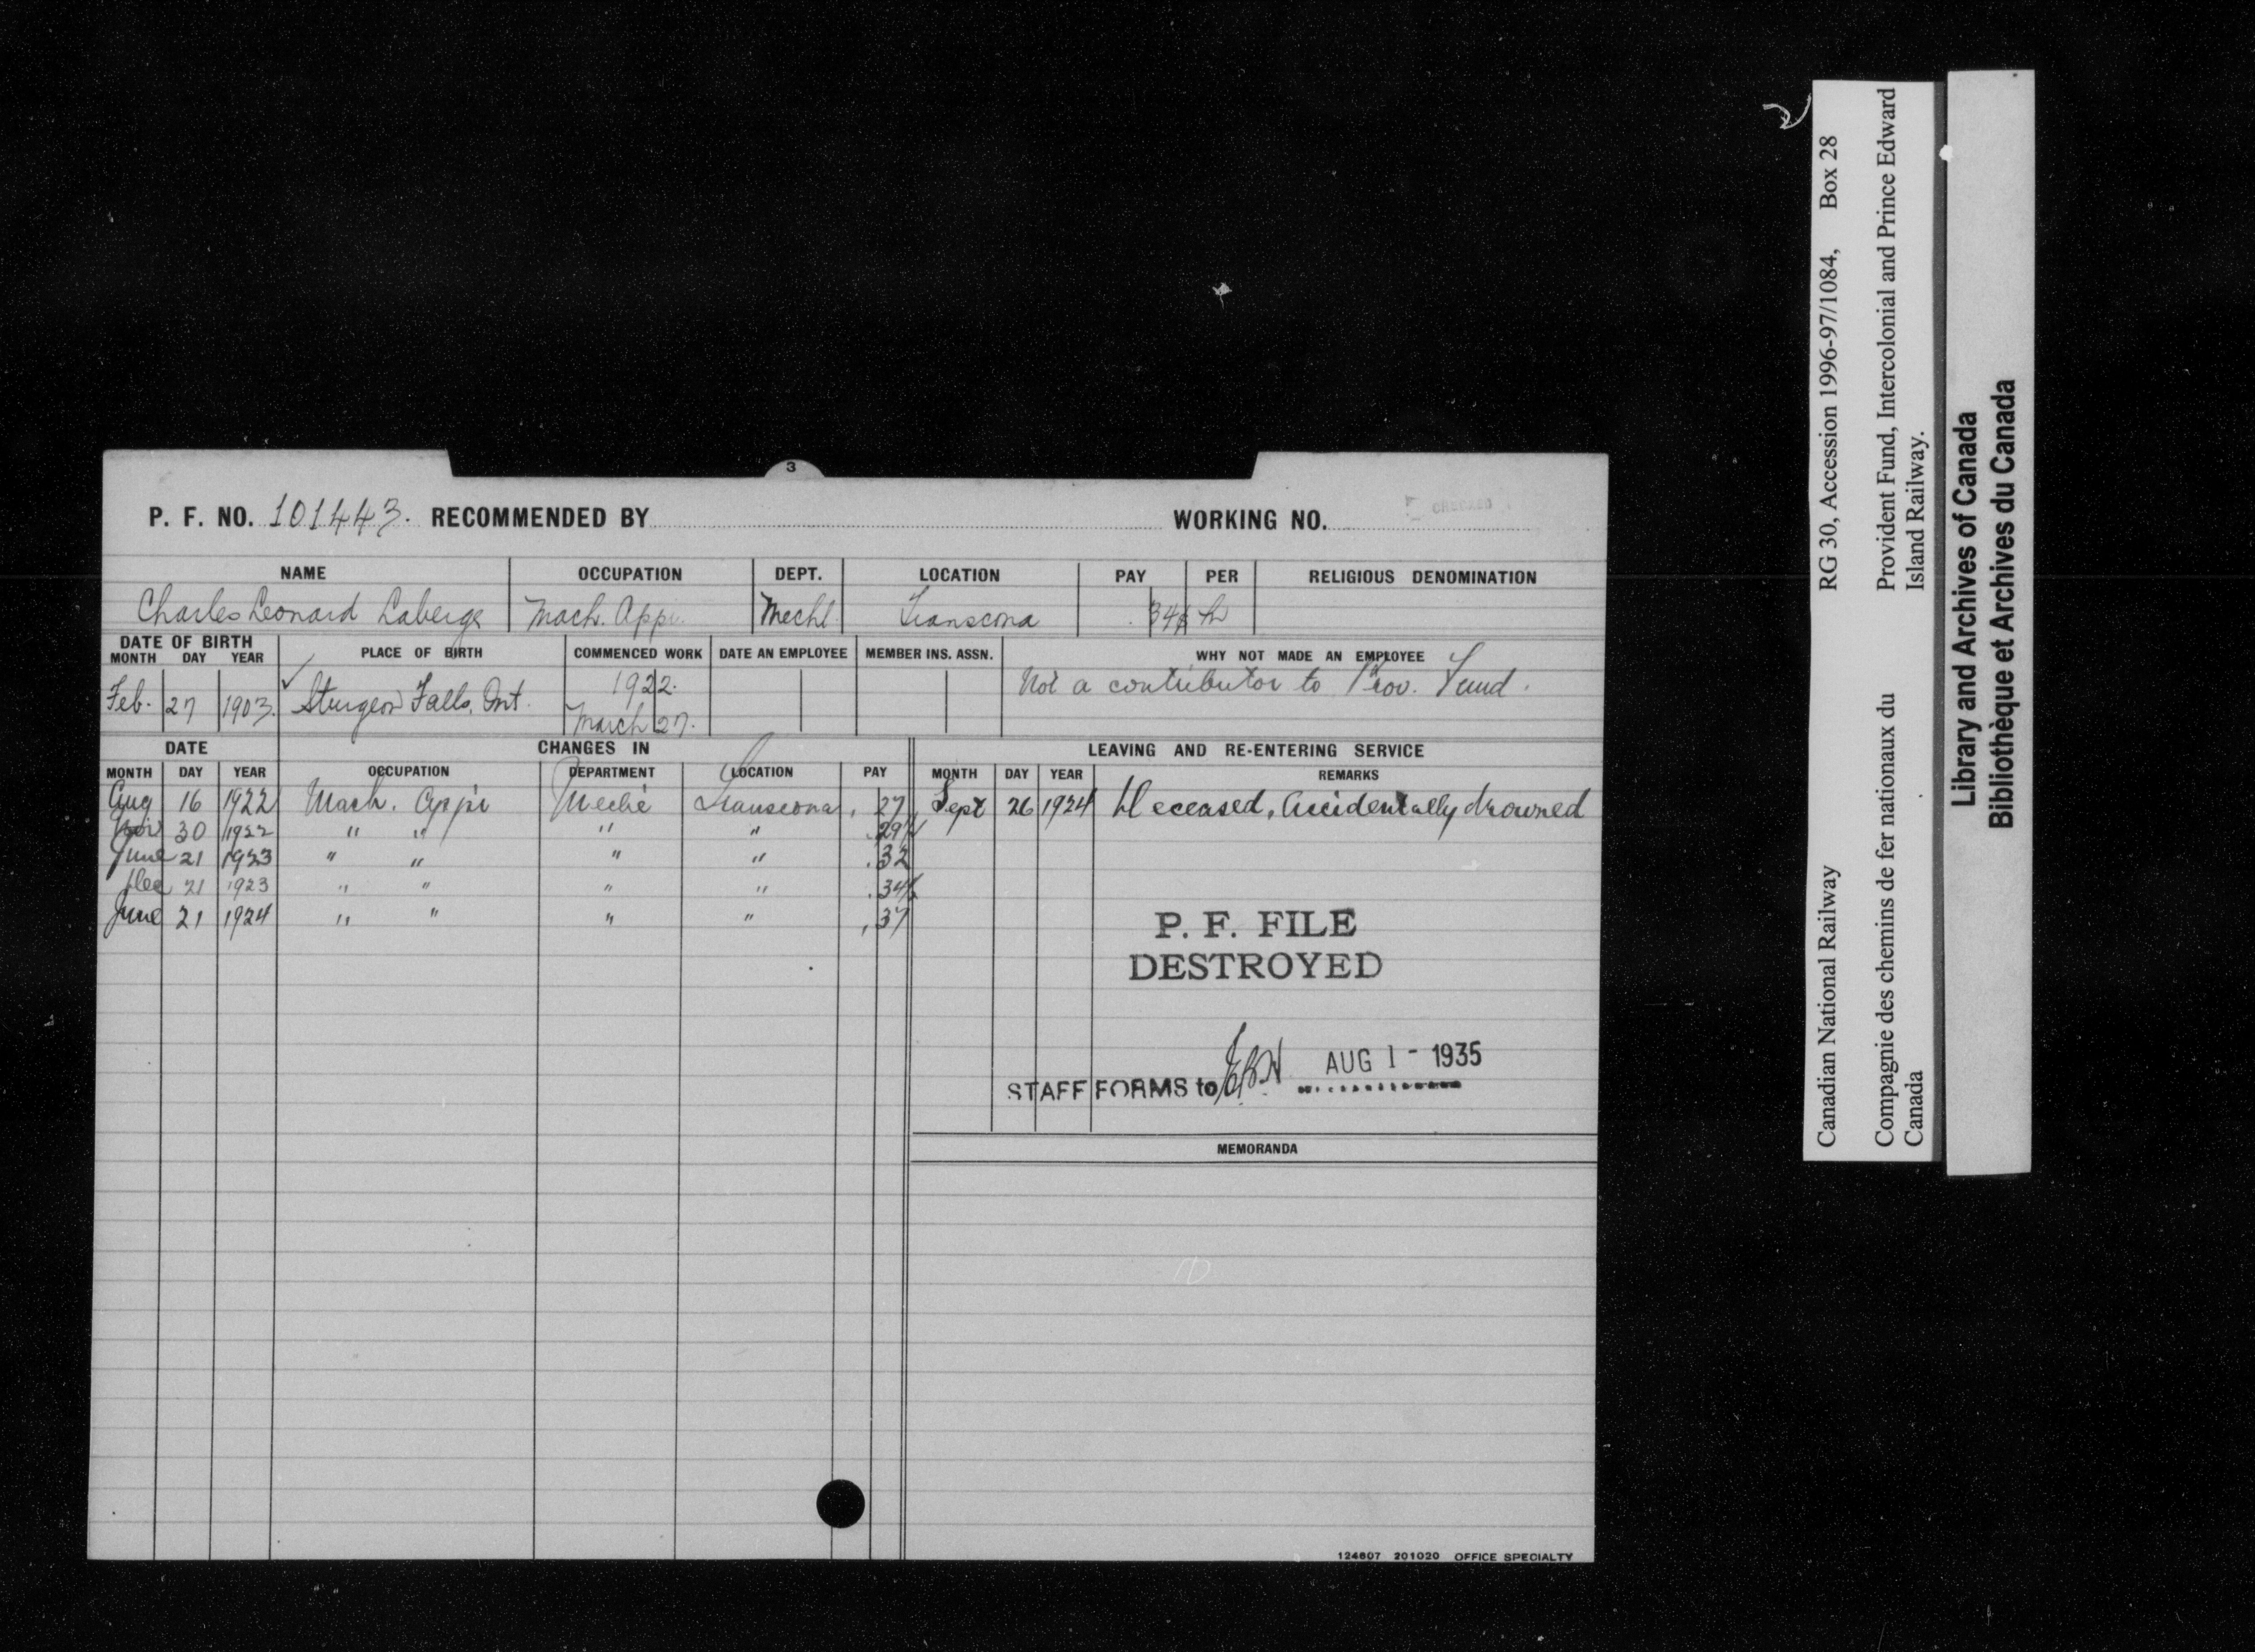 3
P. F. NO. 101443. RECOMMENDED BY WORKING NO. CHECKED
NAME OCCUPATION DEPT. LOCATION PAY PER RELIGIOUS DENOMINATION
Charles Leonard Laberge Mach. Appr. Mechl. Transcona .34½ h
DATE OF BIRTH
MONTH DAY YEAR PLACE OF BIRTH COMMENCED WORK DATE AN EMPLOYEE MEMBER INS. ASSN. WHY NOT MADE AN EMPLOYEE
Feb. 27 1903. Sturgeon Falls, Ont. 1922. March 27. Not a contributor to Prov. Fund.
DATE CHANGES IN LEAVING AND RE-ENTERING SERVICE
MONTH DAY YEAR OCCUPATION DEPARTMENT LOCATION PAY MONTH DAY YEAR REMARKS
Aug 16 1922 Mach. Appr Mechl Transcona .27 Sept 26 1924 Deceased, Accidentally drowned
Nov 30 1922 " " " " .29½
June 21 1923 " " " " .32
Dec 21 1923 " " " " .34½
June 21 1924 " " " " .37
P. F. FILE
DESTROYED
STAFF FORMS to AUG 1 - 1935
MEMORANDA
124607 201020 OFFICE SPECIALTY
Canadian National Railway RG 30, Accession 1996-97/1084, Box 28
Compagnie des chemins de fer nationaux du Provident Fund, Intercolonial and Prince Edward
Canada Island Railway.
Library and Archives of Canada
Bibliothèque et Archives du Canada